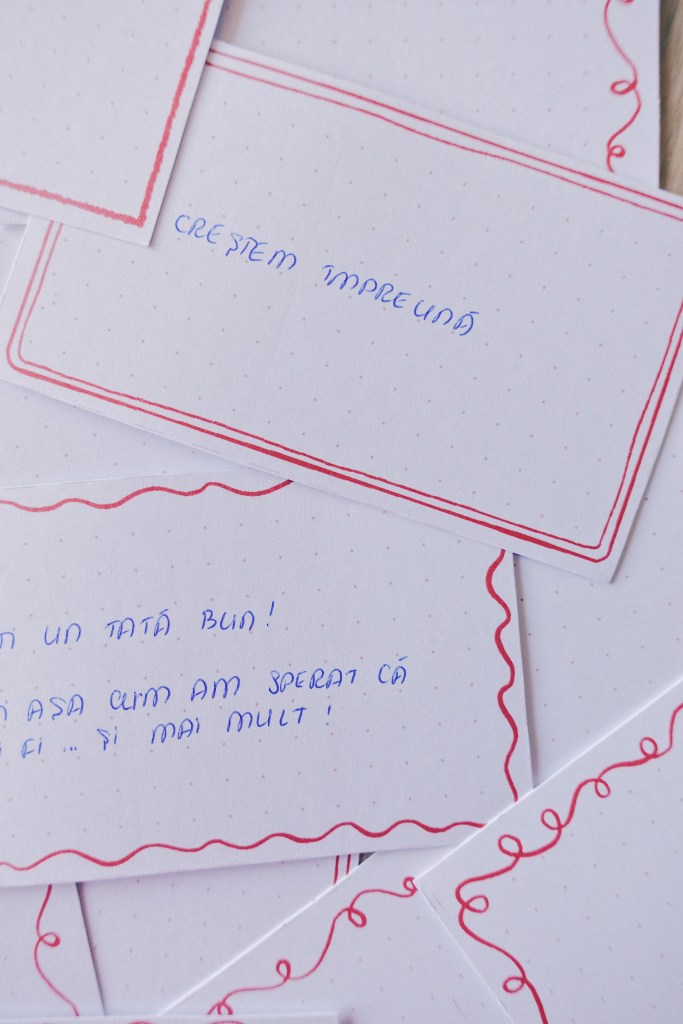 CREȘTEM ÎMPREUNĂ
UN TATĂ BUN!
AȘA CUM AM SPERAT CĂ
FI ... ȘI MAI MULT!